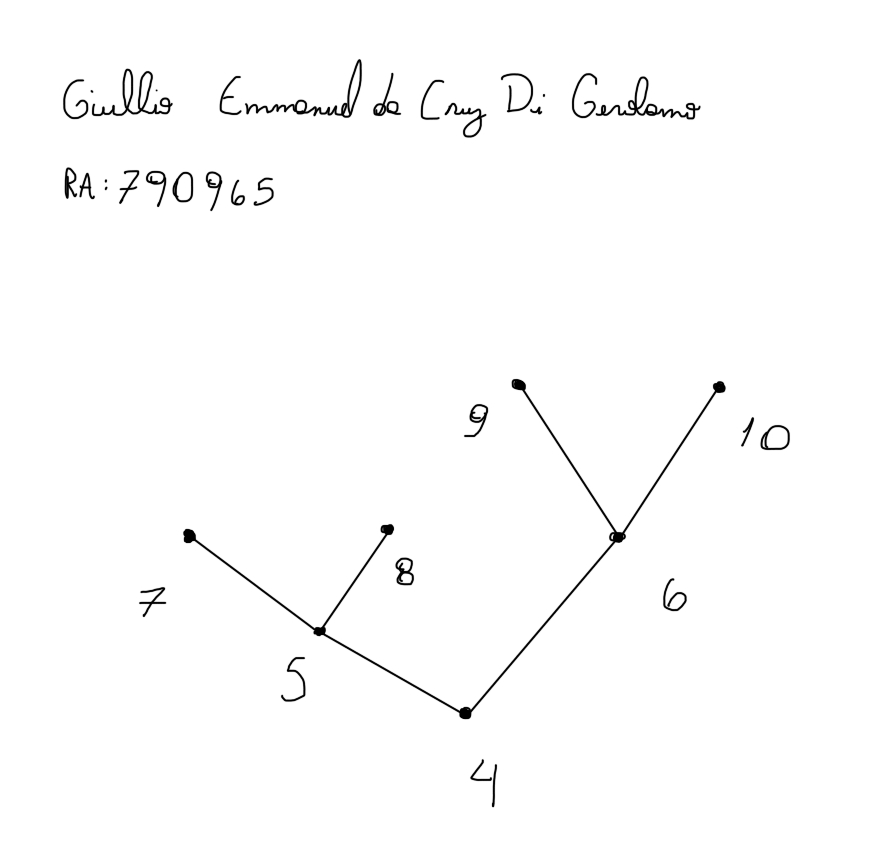 Giullio Emmanuel da Cruz Di Gerolamo
RA: 790965
9
10
8
7
6
5
4